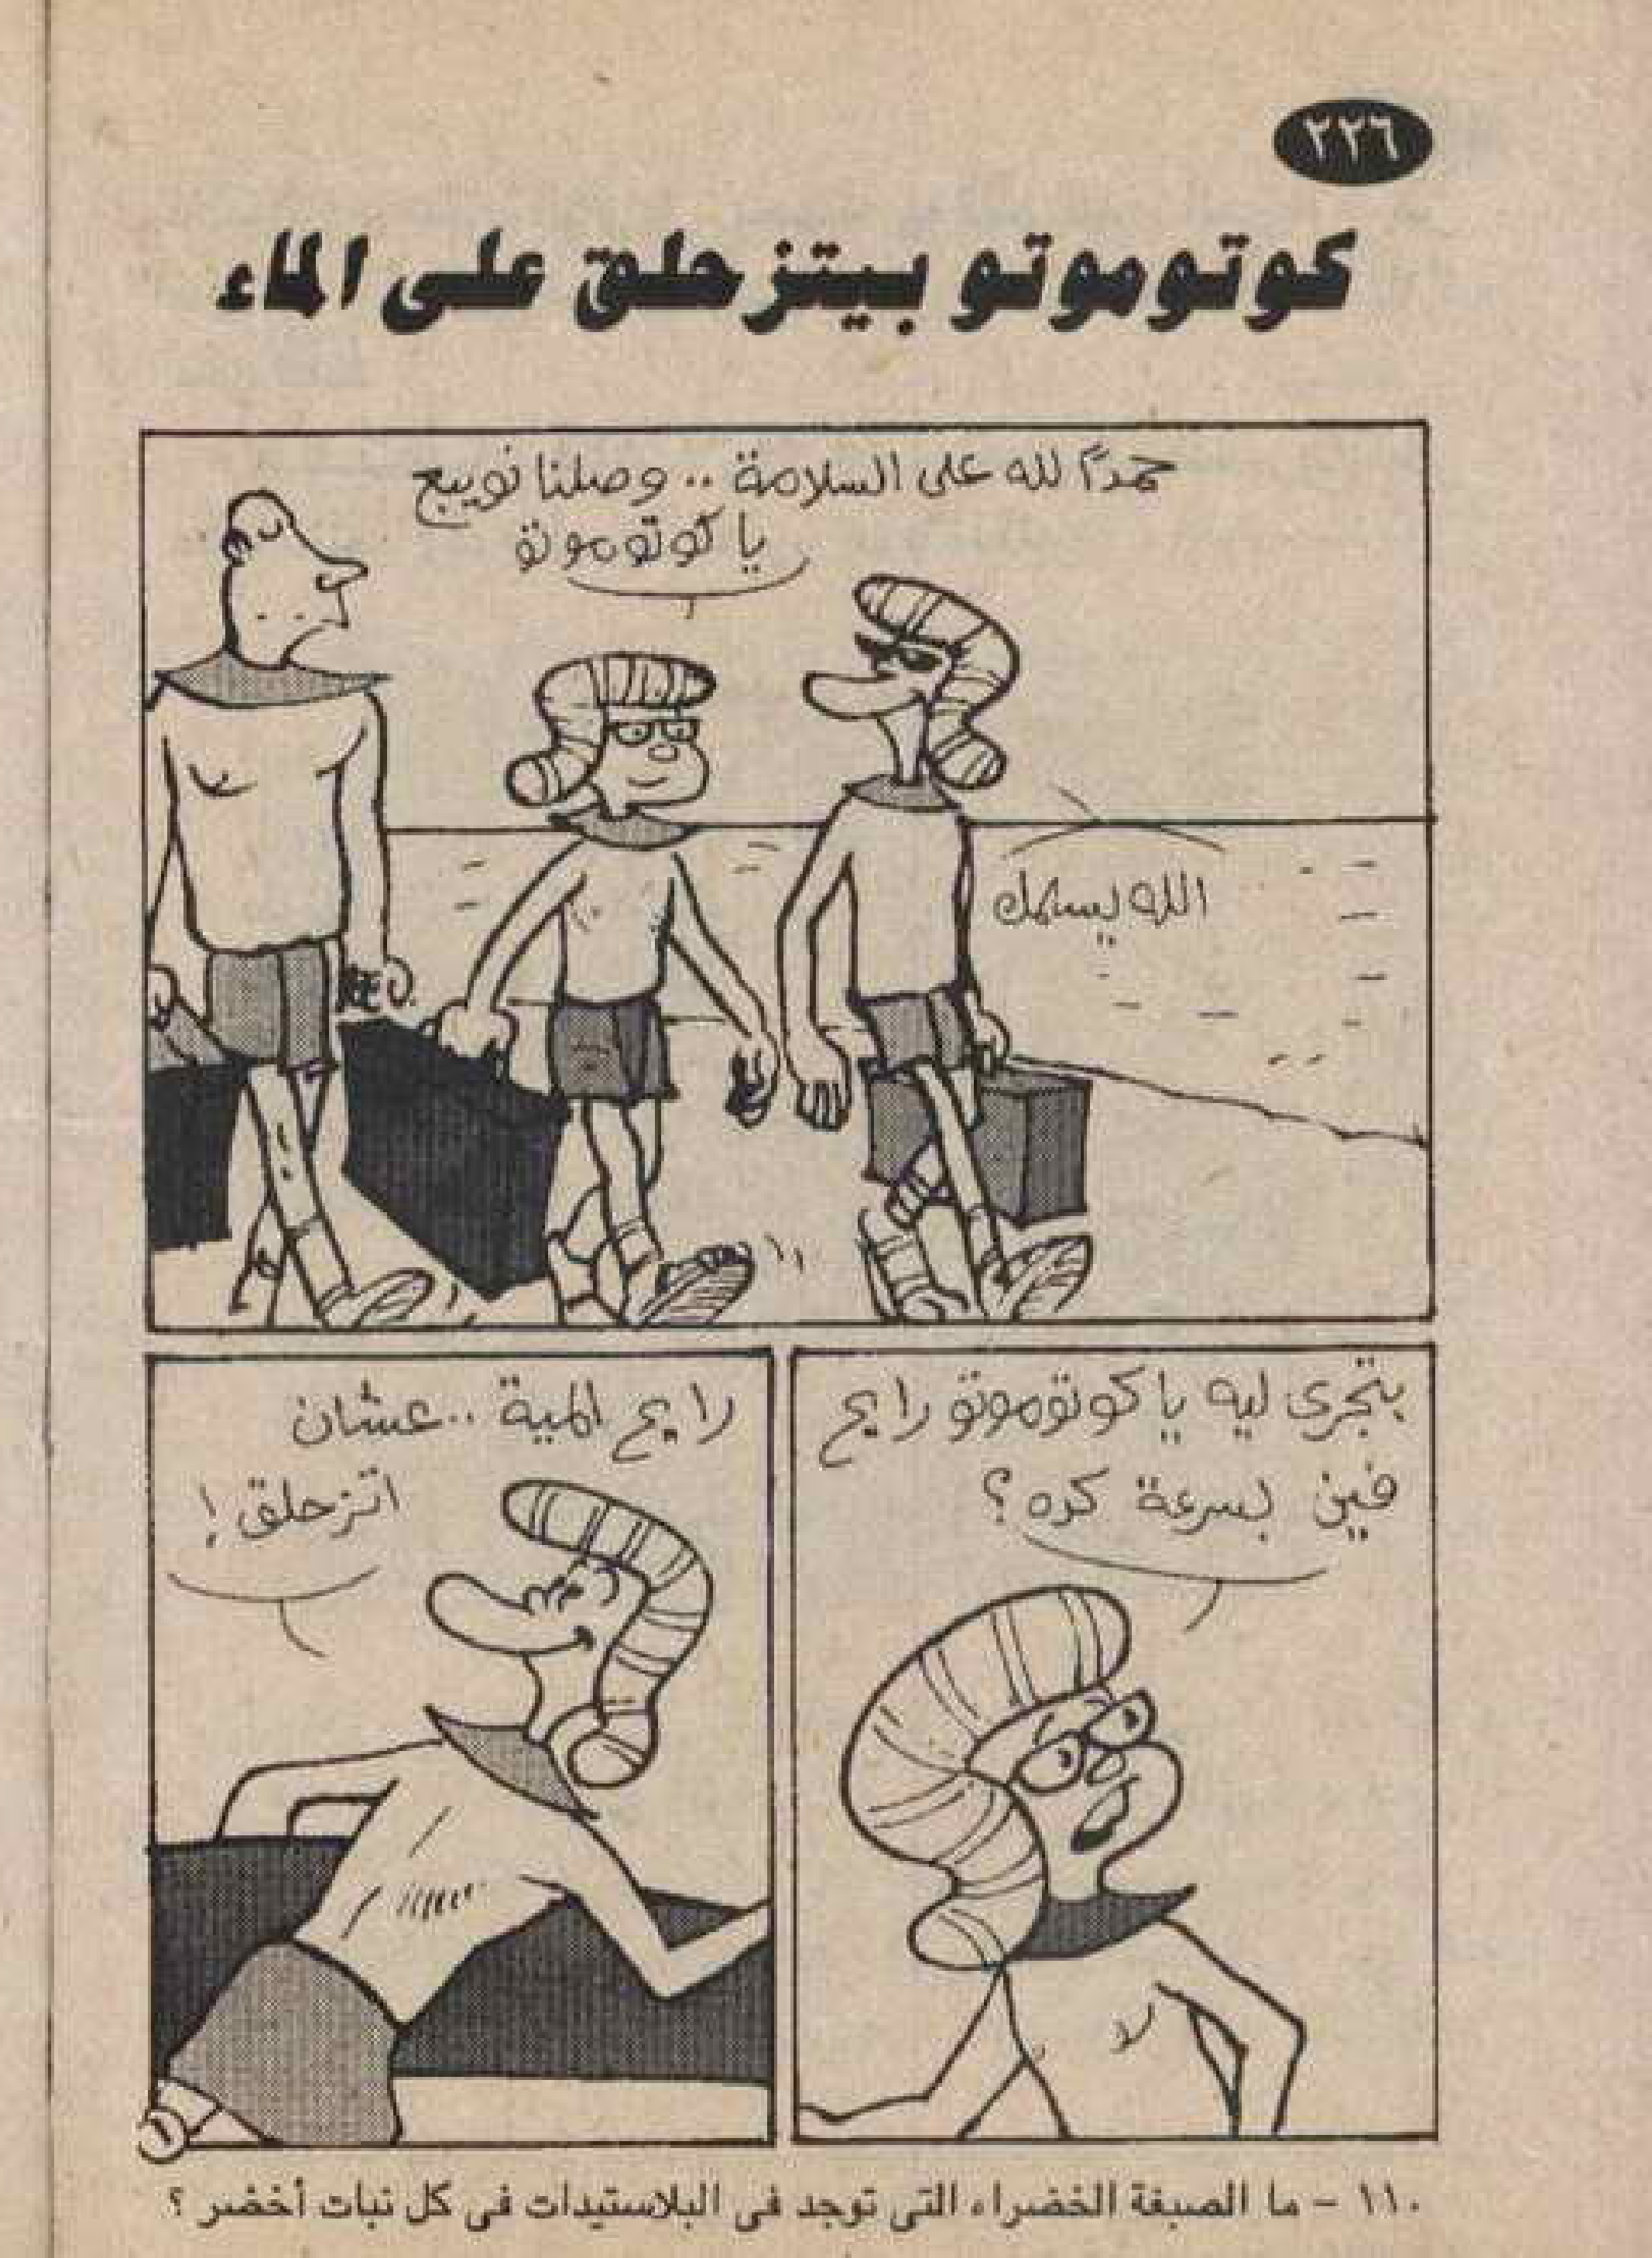 ٢٢٦
كوتوموتو بيتزحلق على الماء
حمداً لله على السلامة .. وصلنا نويبع
يا كوتوموتو
الله يسلمك
بتجرى ليه يا كوتوموتو رايح
فين بسرعة كده ؟
رايح المية .. عشان
اتزحلق !
١
١١٠ - ما الصبغة الخضراء التى توجد فى البلاستيدات فى كل نبات أخضر ؟